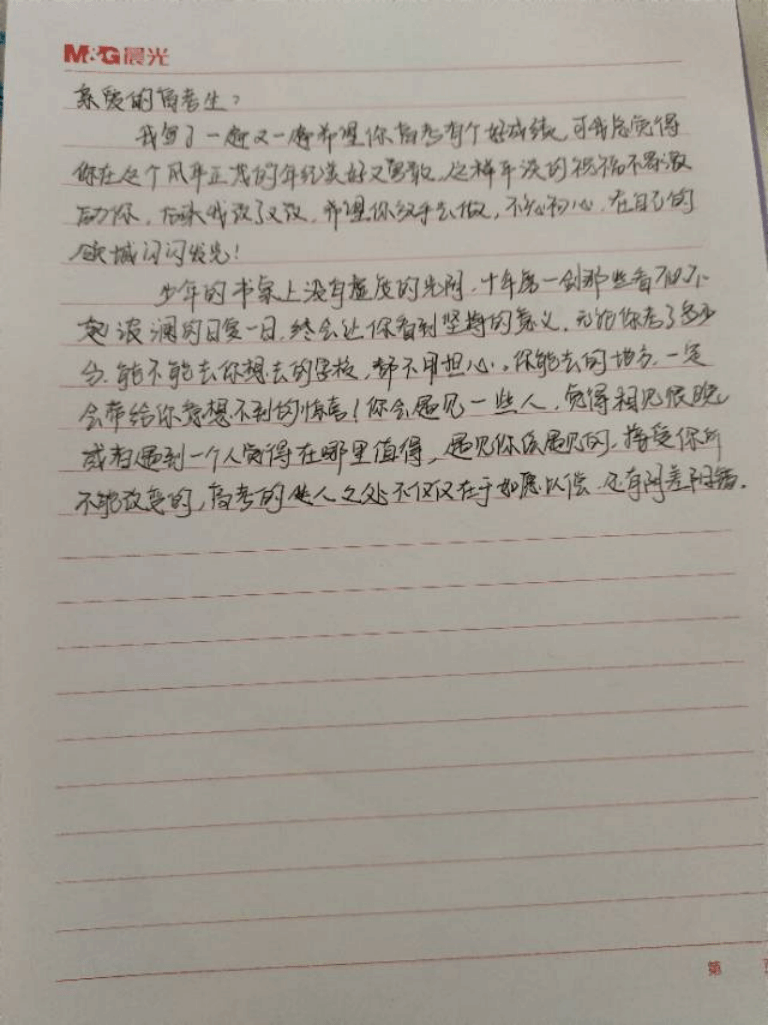 M&G晨光
亲爱的高考生:
我写了一遍又一遍希望你高考有个好成绩,可我总觉得
你在这个风华正茂的年纪美好又勇敢,这样平淡的祝福不够激
励你,后来我改了又改,希望你放手去做,不忘初心,在自己的
领域闪闪发光!
少年的书桌上没有虚度的光阴,十年磨一剑那些看似不
起波澜的日复一日,终会让你看到坚持的意义,无论你考了多少
分,能不能去你想去的学校,都不用担心,你能去的地方,一定
会带给你意想不到的惊喜!你会遇见一些人,觉得相见恨晚
或者遇到一个人觉得在哪里值得,遇见你该遇见的,接受你所
不能改变的,高考的迷人之处不仅仅在于如愿以偿,还有阴差阳错.
第